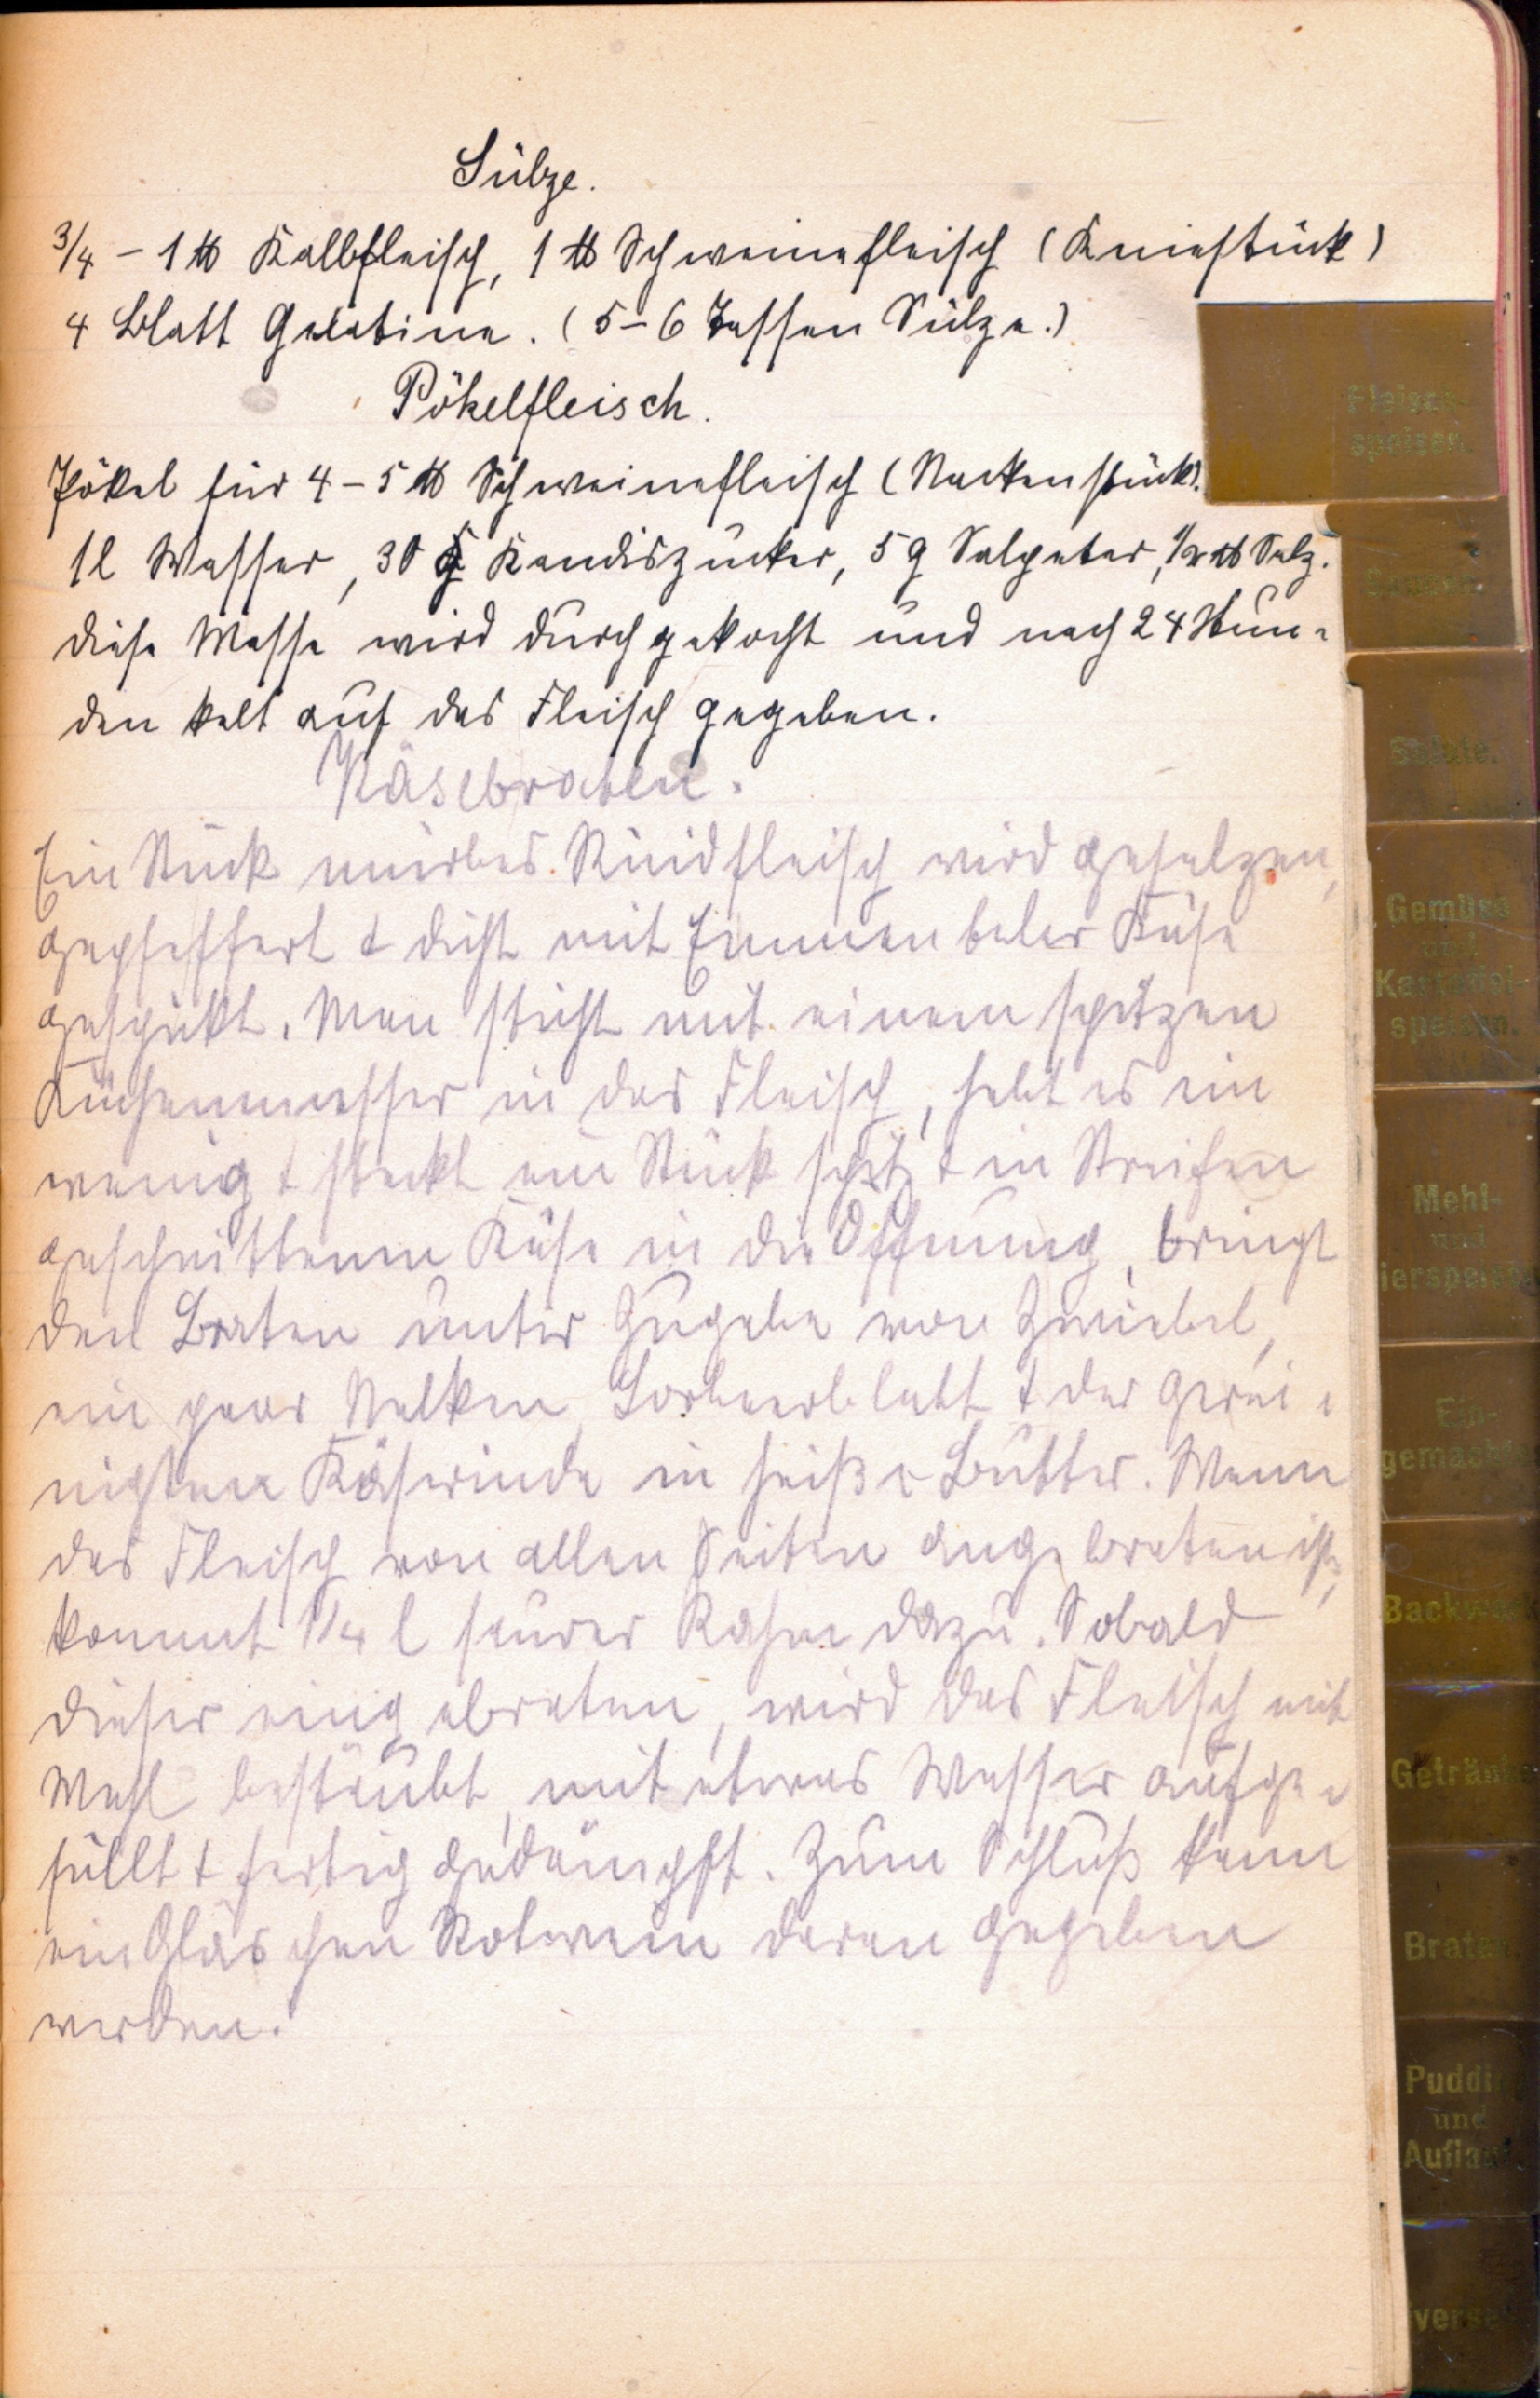 Sülze.
3/4 – 1 ℔ Kalbfleisch, 1 ℔ Schweinefleisch (Kniestück)
4 Blatt Gelatine. (5–6 Tassen Sülze.)
Pökelfleisch.
Pökel für 4–5 ℔ Schweinefleisch (Nackenstück).
1 l Wasser, 30 g Kandiszucker, 5 g Salpeter, 1/2 ℔ Salz.
Diese Masse wird durchgekocht und nach 24 Stun-
den kalt auf das Fleisch gegeben.
Käsebraten.
Ein Stück mürbes Rindfleisch wird gesalzen,
gepfeffert & dicht mit Emmentaler Käse
gespickt. Man sticht mit einem spitzen
Küchenmesser in das Fleisch, hebt es ein
wenig & steckt ein Stück spitz & in Streifen
geschnittenen Käse in die Öffnung, bringt
den Braten unter Zugabe von Zwiebel,
ein paar Nelken, Lorbeerblatt & der gerei-
nigten Käserinde in heißer Butter. Wenn
das Fleisch von allen Seiten angebraten ist,
kommt 1/4 l saurer Rahm dazu. Sobald
dieser eingebraten, wird das Fleisch mit
Mehl bestäubt, mit etwas Wasser aufge-
füllt & fertig gedämpft. Zum Schluß kann
ein Gläschen Rotwein daran gegeben
werden.
Fleisch-
speisen.
Saucen.
Salate.
Gemüse
und
Kartoffel-
speisen.
Mehl-
und
ierspeis
Ein-
gemacht
Backw
Getränk
Braten
Puddin
und
Auflauf
verse